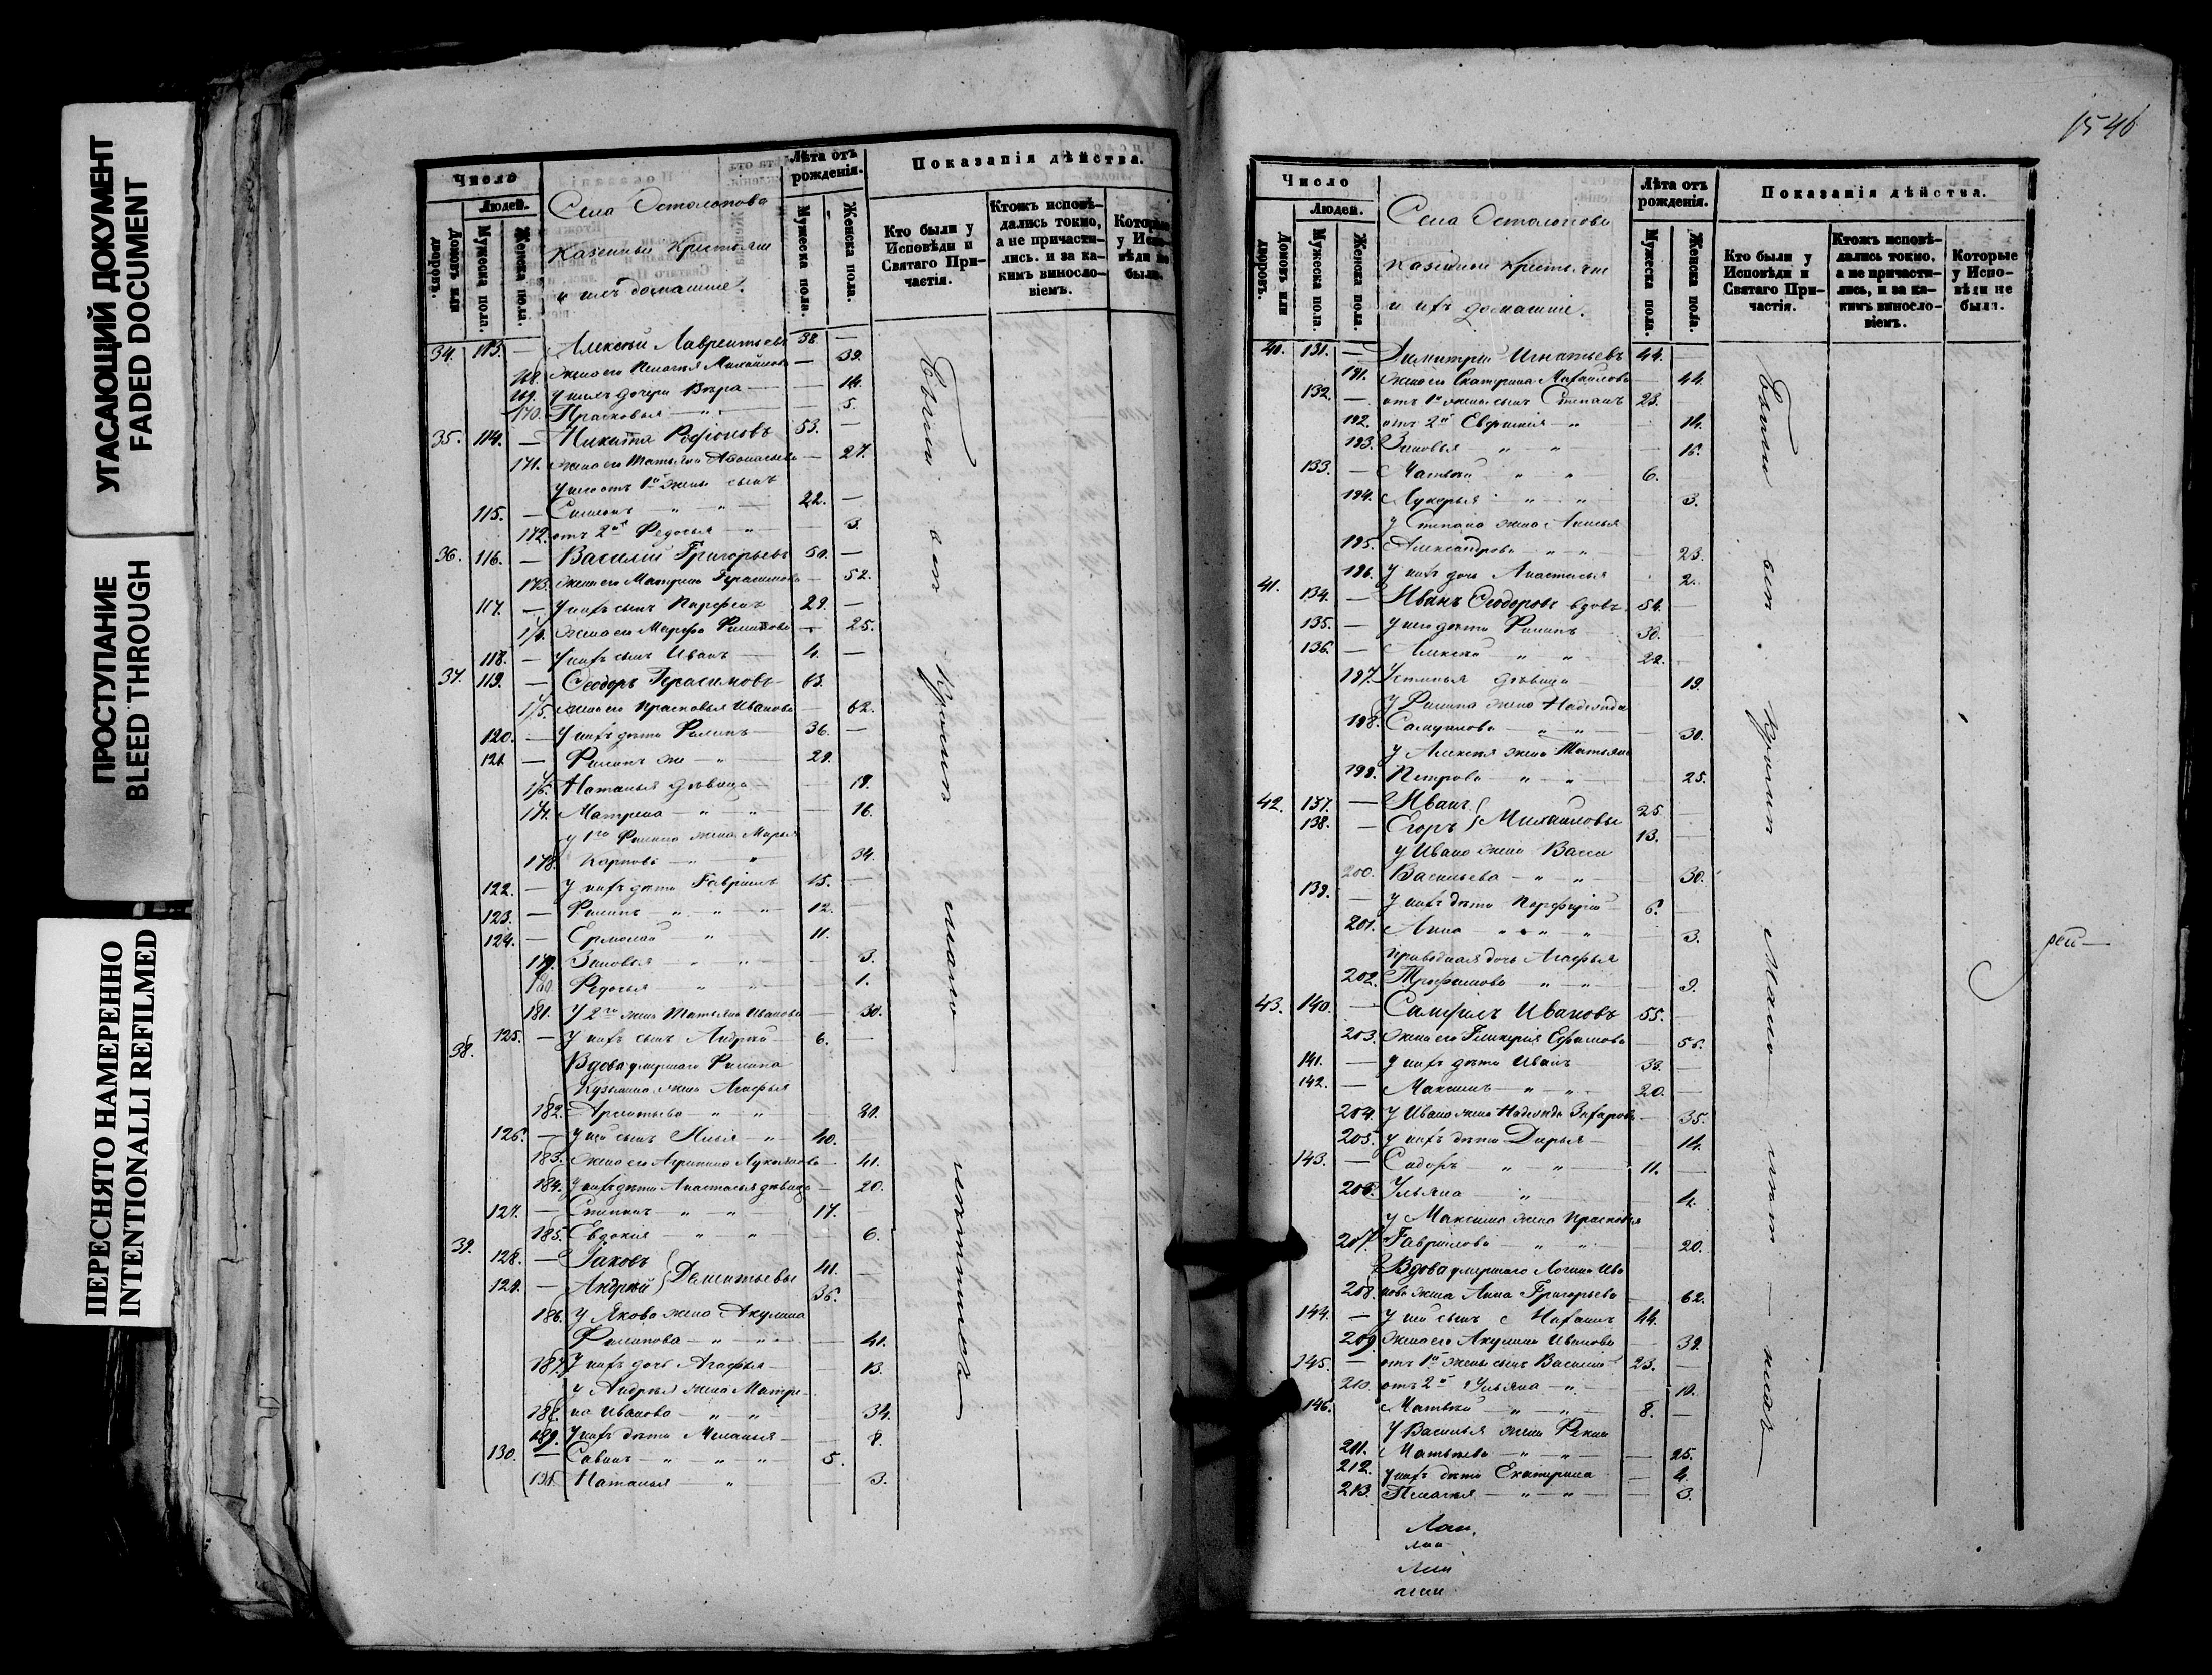 УГАСАЮЩИЙ ДОКУМЕНТ
FADED DOCUMENT
ПРОСТУПАНИЕ
BLEED THROUGH
ПЕРЕСНЯТО НАМЕРЕННО
INTENTIONALLI REFILMED
Число
Людей.
Домовъ или дворовъ.
Мужеска пола.
Женска пола.
Села Остолопова
Казенныи Крестьяне
и ихъ домашніе.
Лѣта отъ рожденія.
Мужеска пола.
Женска пола.
Показанія дѣйства.
Кто были у Исповѣди и Святаго Причастія.
Ктожъ исповѣдались токмо, а не причастились. и за какимъ винословіемъ.
Которые у Исповѣди не были.
34. 113. — Алексѣй Лаврентьевъ 38. —
168. жена его Пелагея Михайлова — 39.
169. у нихъ дочери Вѣра — 14.
170. Прасковья — 5.
35. 114. — Никита Родіоновъ 53. —
171. жена его Татьяна Афонасьева — 27.
у него отъ 1й жены сынъ
115. — Симеонъ 22. —
172. отъ 2й Федосья — 3.
36. 116. — Василій Григорьевъ 50. —
173. жена его Матрена Герасимова — 52.
117. — у нихъ сынъ Парфенъ 29. —
174. жена его Марфа Филипова — 25.
118. — у нихъ сынъ Иванъ 4. —
37. 119. — Ѳеодоръ Герасимовъ 63.
175. жена его Прасковья Иванова — 62.
120. — у нихъ дѣти Филипъ 36. —
121. — Филипъ же 29.
176. Наталья дѣвица 19.
177. Матрена — 16.
у 1го Филипа жена Марья
178. Карпова — 34.
122. — у нихъ дѣти Гавріилъ 15. —
123. — Филипъ 12. —
124. — Ермолай 11.
179. Зиновья — 3.
180. Федосья — 1.
181. У 2го жена Татьяна Иванова — 30.
125. — у нихъ сынъ Андрей 6. —
38. Вдова умершаго Филипа
Кузьмина жена Агафья
182. Арентьева — 80.
126. — у ней сынъ Илья 40.
183. жена его Агрипина Лукьянова — 41.
184. у нихъ дѣти Анастасья дѣвица — 20.
127. — Степанъ 17. —
185. Евдокия — 6.
39. 128. — Іаковъ 41. —
129. — Андрей } Дементьевы 36.
186. у Якова жена Акулина
Филипова — 41.
187. У нихъ дочь Агафья — 13.
у Андрея жена Матре-
188. на Иванова — 34.
189. у нихъ дѣти Меланья — 8.
130. — Савинъ 5.
190. Наталья — 3.
Были въ Красномъ
1546
Число
Людей.
Домовъ или дворовъ.
Мужеска пола.
Женска пола.
Села Остолопова
Казенныи Крестьяне
и ихъ домашніе.
Лѣта отъ рожденія.
Мужеска пола.
Женска пола.
Показанія дѣйства.
Кто были у Исповѣди и Святаго Причастія.
Ктожъ исповѣдались токмо, а не причастились, и за какимъ винословіемъ.
Которые у Исповѣди не были.
40. 131. — Димитрій Игнатьевъ 44. —
191. жена его Екатерина Михайлова — 44.
132. — отъ 1й жены сынъ Степанъ 23. —
192. отъ 2й Евфимія — 14.
193. Зиновья — 15.
133. — Матвѣй 6. —
194. Лукерья — 3.
у Степана жена Анисья
195. Александрова — 23.
196. у нихъ дочь Анастасья — 2.
41. 134. — Иванъ Ѳеодоровъ вдовъ 54. —
135. — у него дѣти Филипъ 30. —
136. — Алексѣй 22. —
197. Устинья дѣвица — 19.
У Филипа жена Надежда
198. Самуилова — 30.
у Алексѣя жена Татьяна
199. Петрова — 25.
42. 137. — Иванъ 25.
138. — Егоръ } Михайловы 13. —
у Ивана жена Васса
200. Васильева — 30.
139. — у нихъ дѣти Порфирій 6. —
201. Анна — 3.
приводная дочь Агафья
202. Трофимова — 9.
43. 140. — Самуилъ Ивановъ 55. —
203. жена его Гликерія Ефимова — 56.
141. — у нихъ дѣти Иванъ 33. —
142. — Максимъ 20. —
204. у Ивана жена Надежда Захарова — 35.
205. у нихъ дѣти Дарья — 14.
143. — Сидоръ 11. —
206. Ульяна — 4.
у Максима жена Прасковья
207. Гавріилова — 20.
Вдова умершаго Логина Ива
208. нова жена Анна Григорьева — 62.
144. — у ней сынъ 44.
209. жена его Акулина Иванова — 39.
145. — отъ 1й жены сынъ Василій 23. —
210. отъ 2й Ульяна — 10.
146. — Матвѣй 8. —
У Василья жена Фекла
211. Матвѣева — 25.
212. у нихъ дѣти Екатерина — 4.
213. Пелагея — 3.
Были